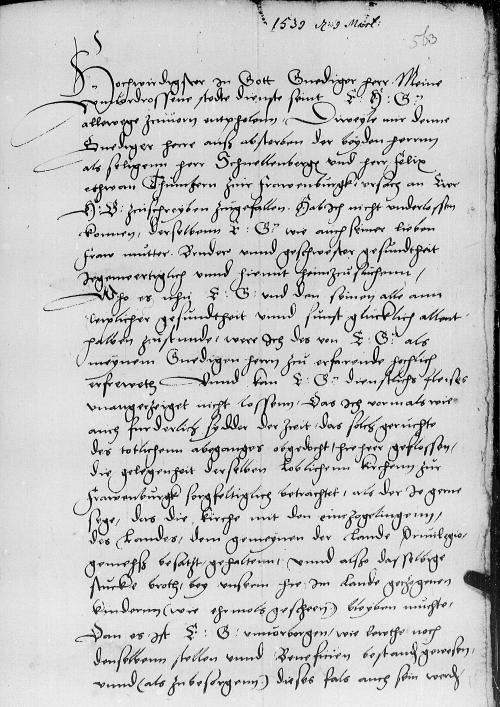 1539 Aug Mart:
563
Hochwirdigster in Gott Gnediger herr Meine
unvordrossene stete dienste seint E: H: G:
allewege zuuorn entpholenn, Dieweyle mir denne
Gnediger herre auß absterben der beyden herrnn
als seligenn herr Schnellenberge und herr felix
etwan Thumhern zur frawenburgk, ursach an Eure
H: G: zuschreyben zugefallen. Hab ich nicht underlossen
konnen, derselbenn E: G: wie auch seiner lieben
fraw mutter. Bruder und geschwester gesundtheit
Jegenwertiglich unnd hiemit heimzusuchenn,
Who es nhu E: G: und den seinen alle ann
leyplicher gesundtheit unnd sunst glucklich allent
halben zustunde, were ich des von E: G: als
meynem Gnedigen hern zu erfarende hochlich
erfreweth Unnd kan E: G: dienstlichs fleisses
unangezeiget nicht lossenn, Das ich vormals wie
auch furderlich sydder der Zeit, das solch geruchte
des totlichenn abeganges obgedocht, hieher geflossen,
die gelegenheit derselben loblichenn kirchenn zur
frawenburgk sorgfeltiglich betrachtet, als der ie gerne
sege, das die kirche mit den einzogelingenn,
des Landes, dem gemeynen der Lande Privilegio
gemehß besatzt, gehaltenn, unnd also dasselbige
stucke broth, bey unsern hie im lande gezogenen
kindernn (wie ehrmols gescheen) bleyben muchte,
Dan es ist E: G: unvorborgen, wie berethe noch
denselbenn stellen unnd Beneficien bestandt gewesen,
unnd (als zubesorgenn) dieses fals auch sein werdt